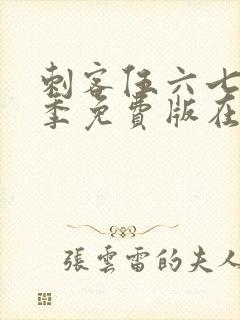 刺客伍六七
季免費版在
張雲雷的夫人